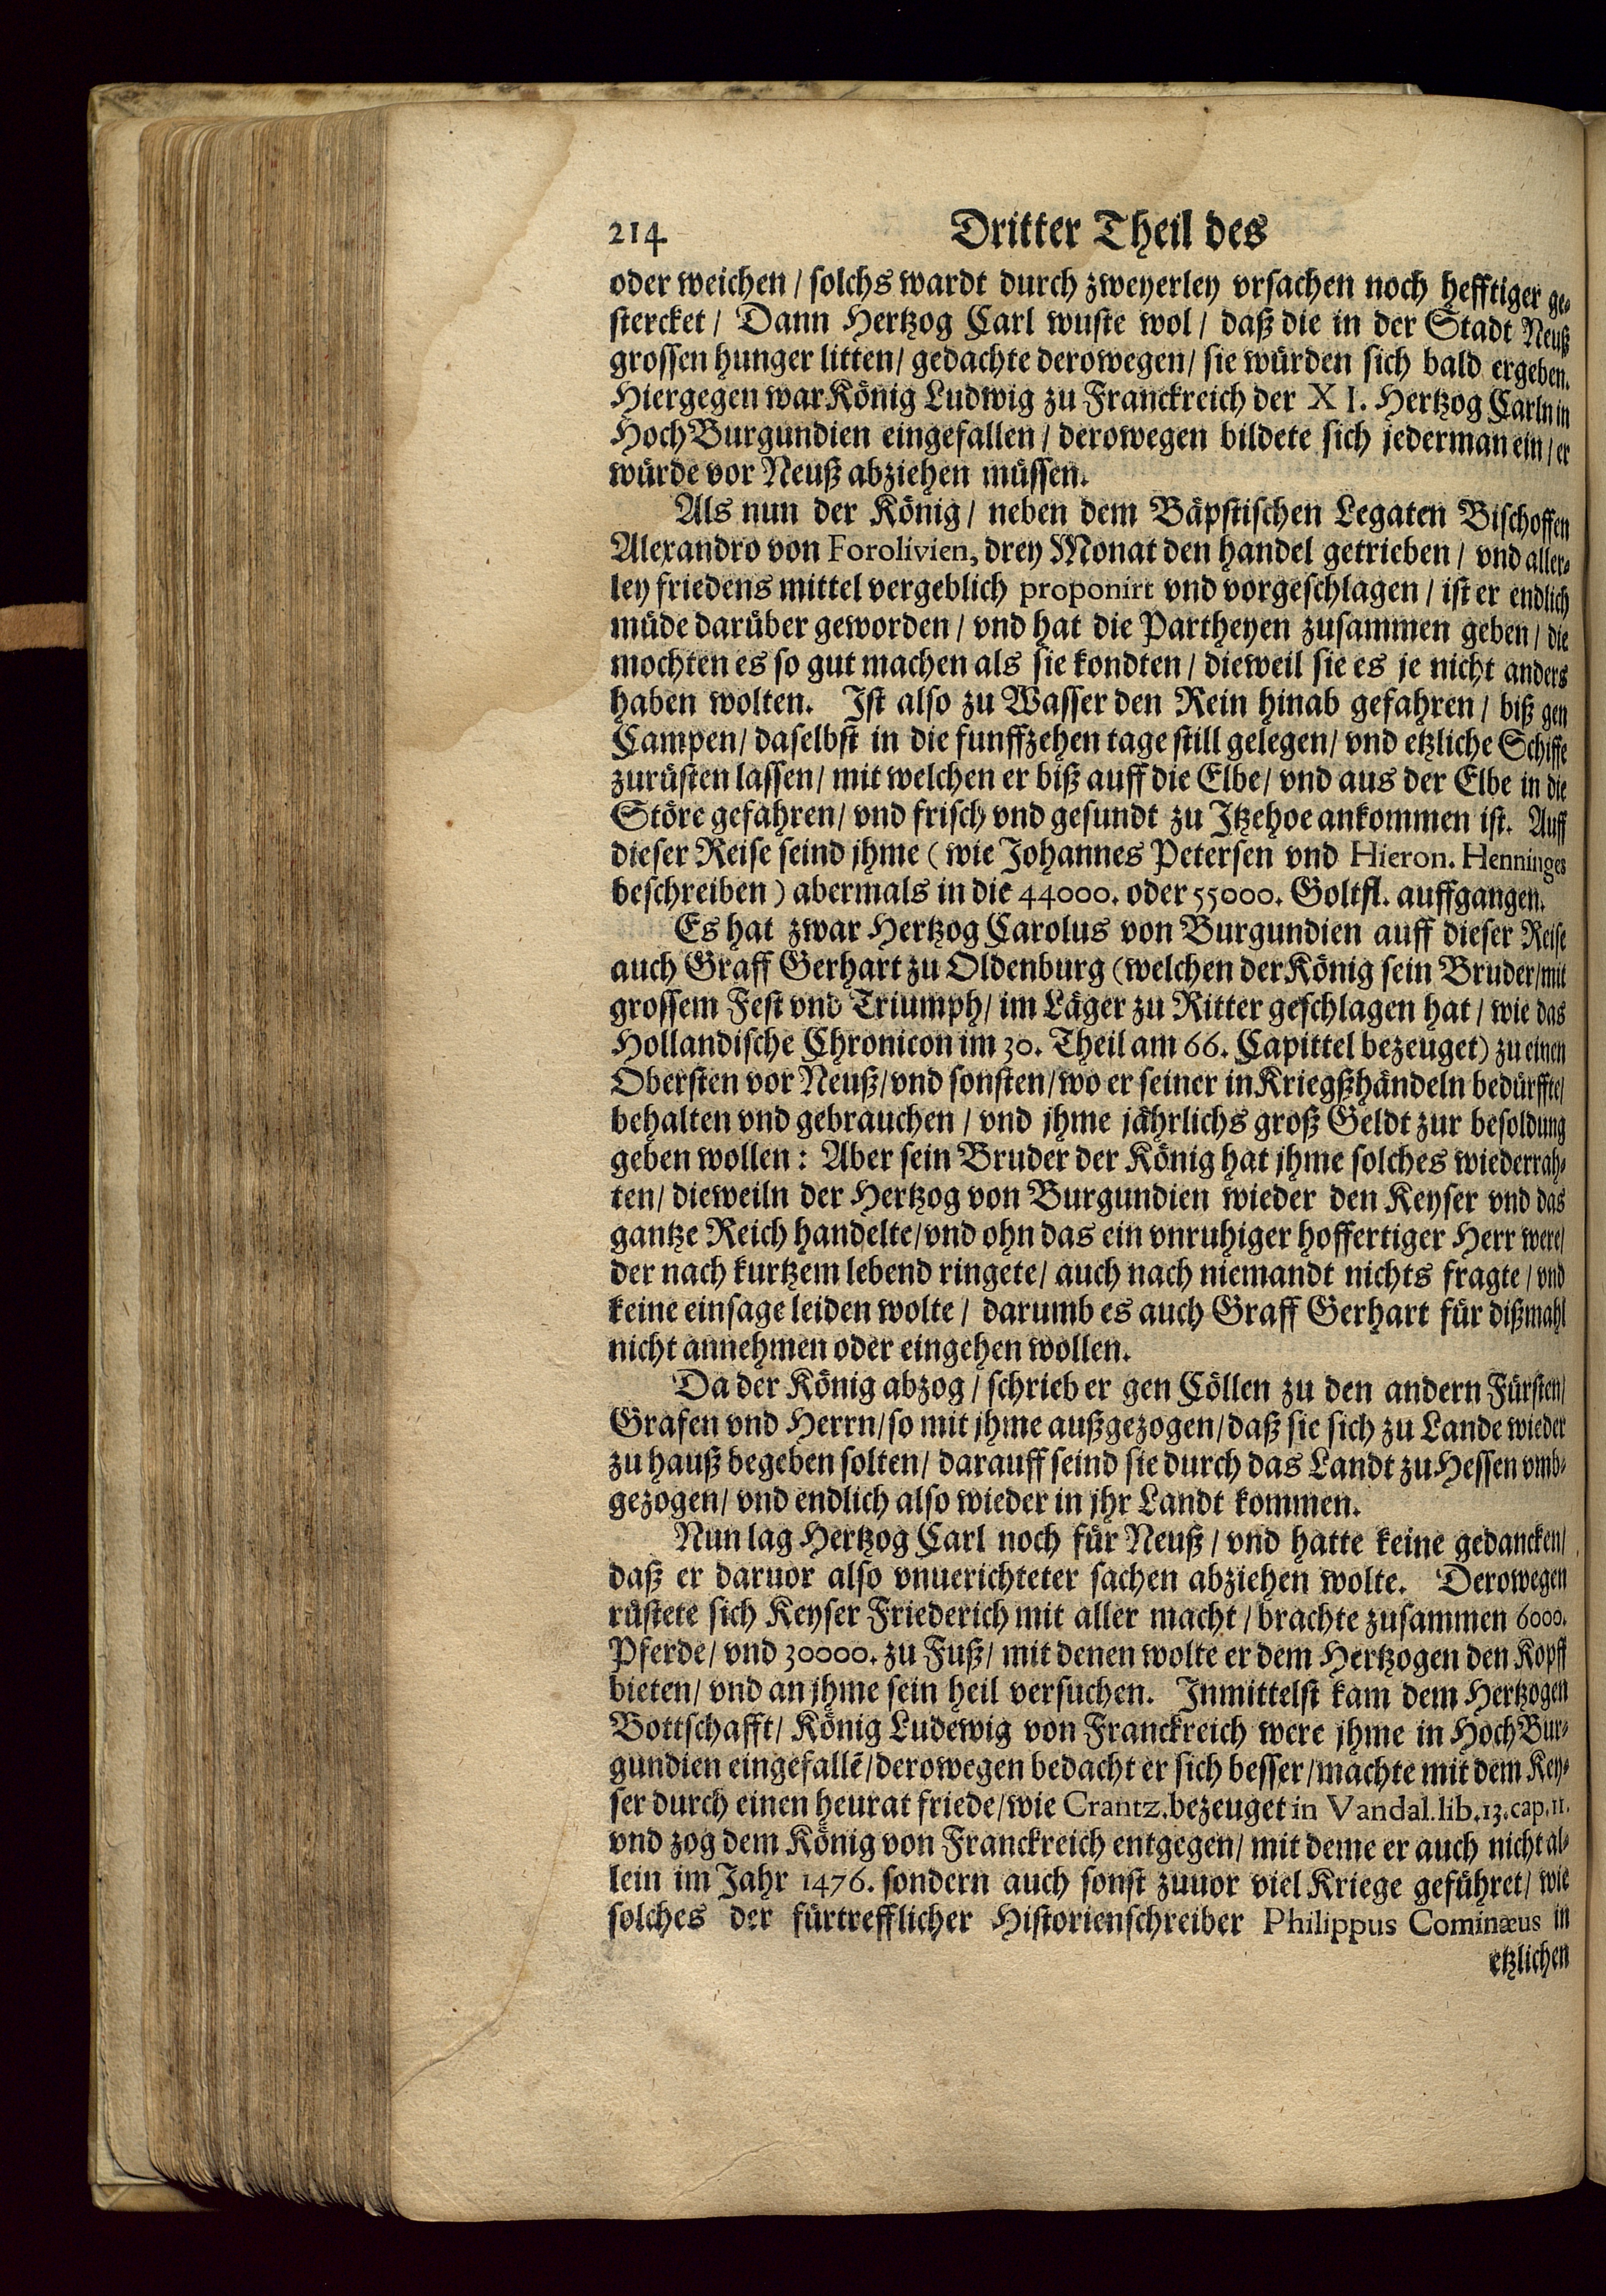 214 Dritter Theil des
oder weichen / solchs wardt durch zweyerley vrsachen noch hefftiger ge-
stercket / Dann Hertzog Carl wuste wol / daß die in der Stadt Neuß
grossen hunger litten / gedachte derowegen / sie würden sich bald ergeben.
Hiergegen war König Ludwig zu Franckreich der XI. Hertzog Carln in
HochBurgundien eingefallen / derowegen bildete sich jederman ein / er
würde vor Neuß abziehen müssen.
Als nun der König / neben dem Bäpstischen Legaten Bischoffen
Alexandro von Forolivien, drey Monat den handel getrieben / vnd aller-
ley friedens mittel vergeblich proponirt vnd vorgeschlagen / ist er endlich
müde darüber geworden / vnd hat die Partheyen zusammen geben / die
mochten es so gut machen als sie kondten / dieweil sie es je nicht anders
haben wolten. Ist also zu Wasser den Rein hinab gefahren / biß gen
Campen / daselbst in die funffzehen tage still gelegen / vnd etzliche Schiffe
zurüsten lassen / mit welchen er biß auff die Elbe / vnd aus der Elbe in die
Störe gefahren / vnd frisch vnd gesundt zu Itzehoe ankommen ist. Auff
dieser Reise seind jhme (wie Johannes Petersen vnd Hieron. Henninges
beschreiben) abermals in die 44000. oder 55000. Goltfl. auffgangen.
Es hat zwar Hertzog Carolus von Burgundien auff dieser Reise
auch Graff Gerhart zu Oldenburg (welchen der König sein Bruder / mit
grossem Fest vnd Triumph / im Läger zu Ritter geschlagen hat / wie das
Hollandische Chronicon im 30. Theil am 66. Capittel bezeuget) zu einen
Obersten vor Neuß / vnd sonsten / wo er seiner in Kriegßhändeln bedürffte /
behalten vnd gebrauchen / vnd jhme jährlichs groß Geldt zur besoldung
geben wollen: Aber sein Bruder der König hat jhme solches wiederrah-
ten / dieweiln der Hertzog von Burgundien wieder den Keyser vnd das
gantze Reich handelte / vnd ohn das ein vnruhiger hoffertiger Herr were /
der nach kurtzem lebend ringete / auch nach niemandt nichts fragte / vnd
keine einsage leiden wolte / darumb es auch Graff Gerhart für dißmahl
nicht annehmen oder eingehen wollen.
Da der König abzog / schrieb er gen Cöllen zu den andern Fürsten /
Grafen vnd Herrn / so mit jhme außgezogen / daß sie sich zu Lande wieder
zu hauß begeben solten / darauff seind sie durch das Landt zu Hessen vmb-
gezogen / vnd endlich also wieder in jhr Landt kommen.
Nun lag Hertzog Carl noch für Neuß / vnd hatte keine gedancken /
daß er daruor also vnuerichteter sachen abziehen wolte. Derowegen
rüstete sich Keyser Friederich mit aller macht / brachte zusammen 6000.
Pferde / vnd 30000. zu Fuß / mit denen wolte er dem Hertzogen den Kopff
bieten / vnd an jhme sein heil versuchen. Inmittelst kam dem Hertzogen
Bottschafft / König Ludewig von Franckreich were jhme in HochBur-
gundien eingefallẽ / derowegen bedacht er sich besser / machte mit dem Key-
ser durch einen heurat friede / wie Crantz. bezeuget in Vandal. lib. 13. cap. 11.
vnd zog dem König von Franckreich entgegen / mit deme er auch nicht al-
lein im Jahr 1476. sondern auch sonst zuuor viel Kriege geführet / wie
solches der fürtrefflicher Historienschreiber Philippus Cominæus in
etzlichen